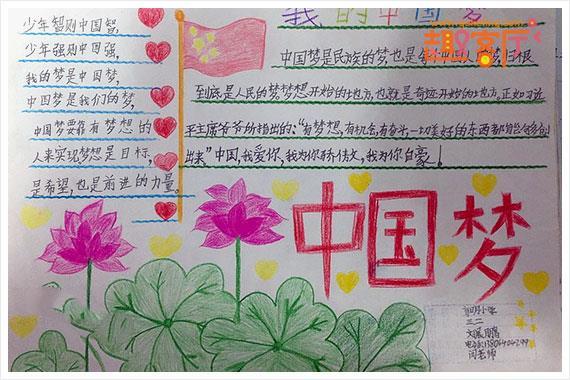 我的中国梦
趣客厅
少年智则中国智,
少年强则中国强,
我的梦是中国梦,
中国梦是我们的梦,
中国梦要靠有梦想的
人来实现梦想是目标,
是希望,也是前进的力量。
中国梦是民族的梦,也是
归根
到底是人民的梦,梦想开始的地方,也就是奇迹开始的地方。正如习近
平主席爷爷所指出的:“有梦想,有机会,有奋斗,一切美好的东西都能够创
出来”中国,我爱你,我为你骄傲,我为你自豪!
中国梦
三二
闫老师